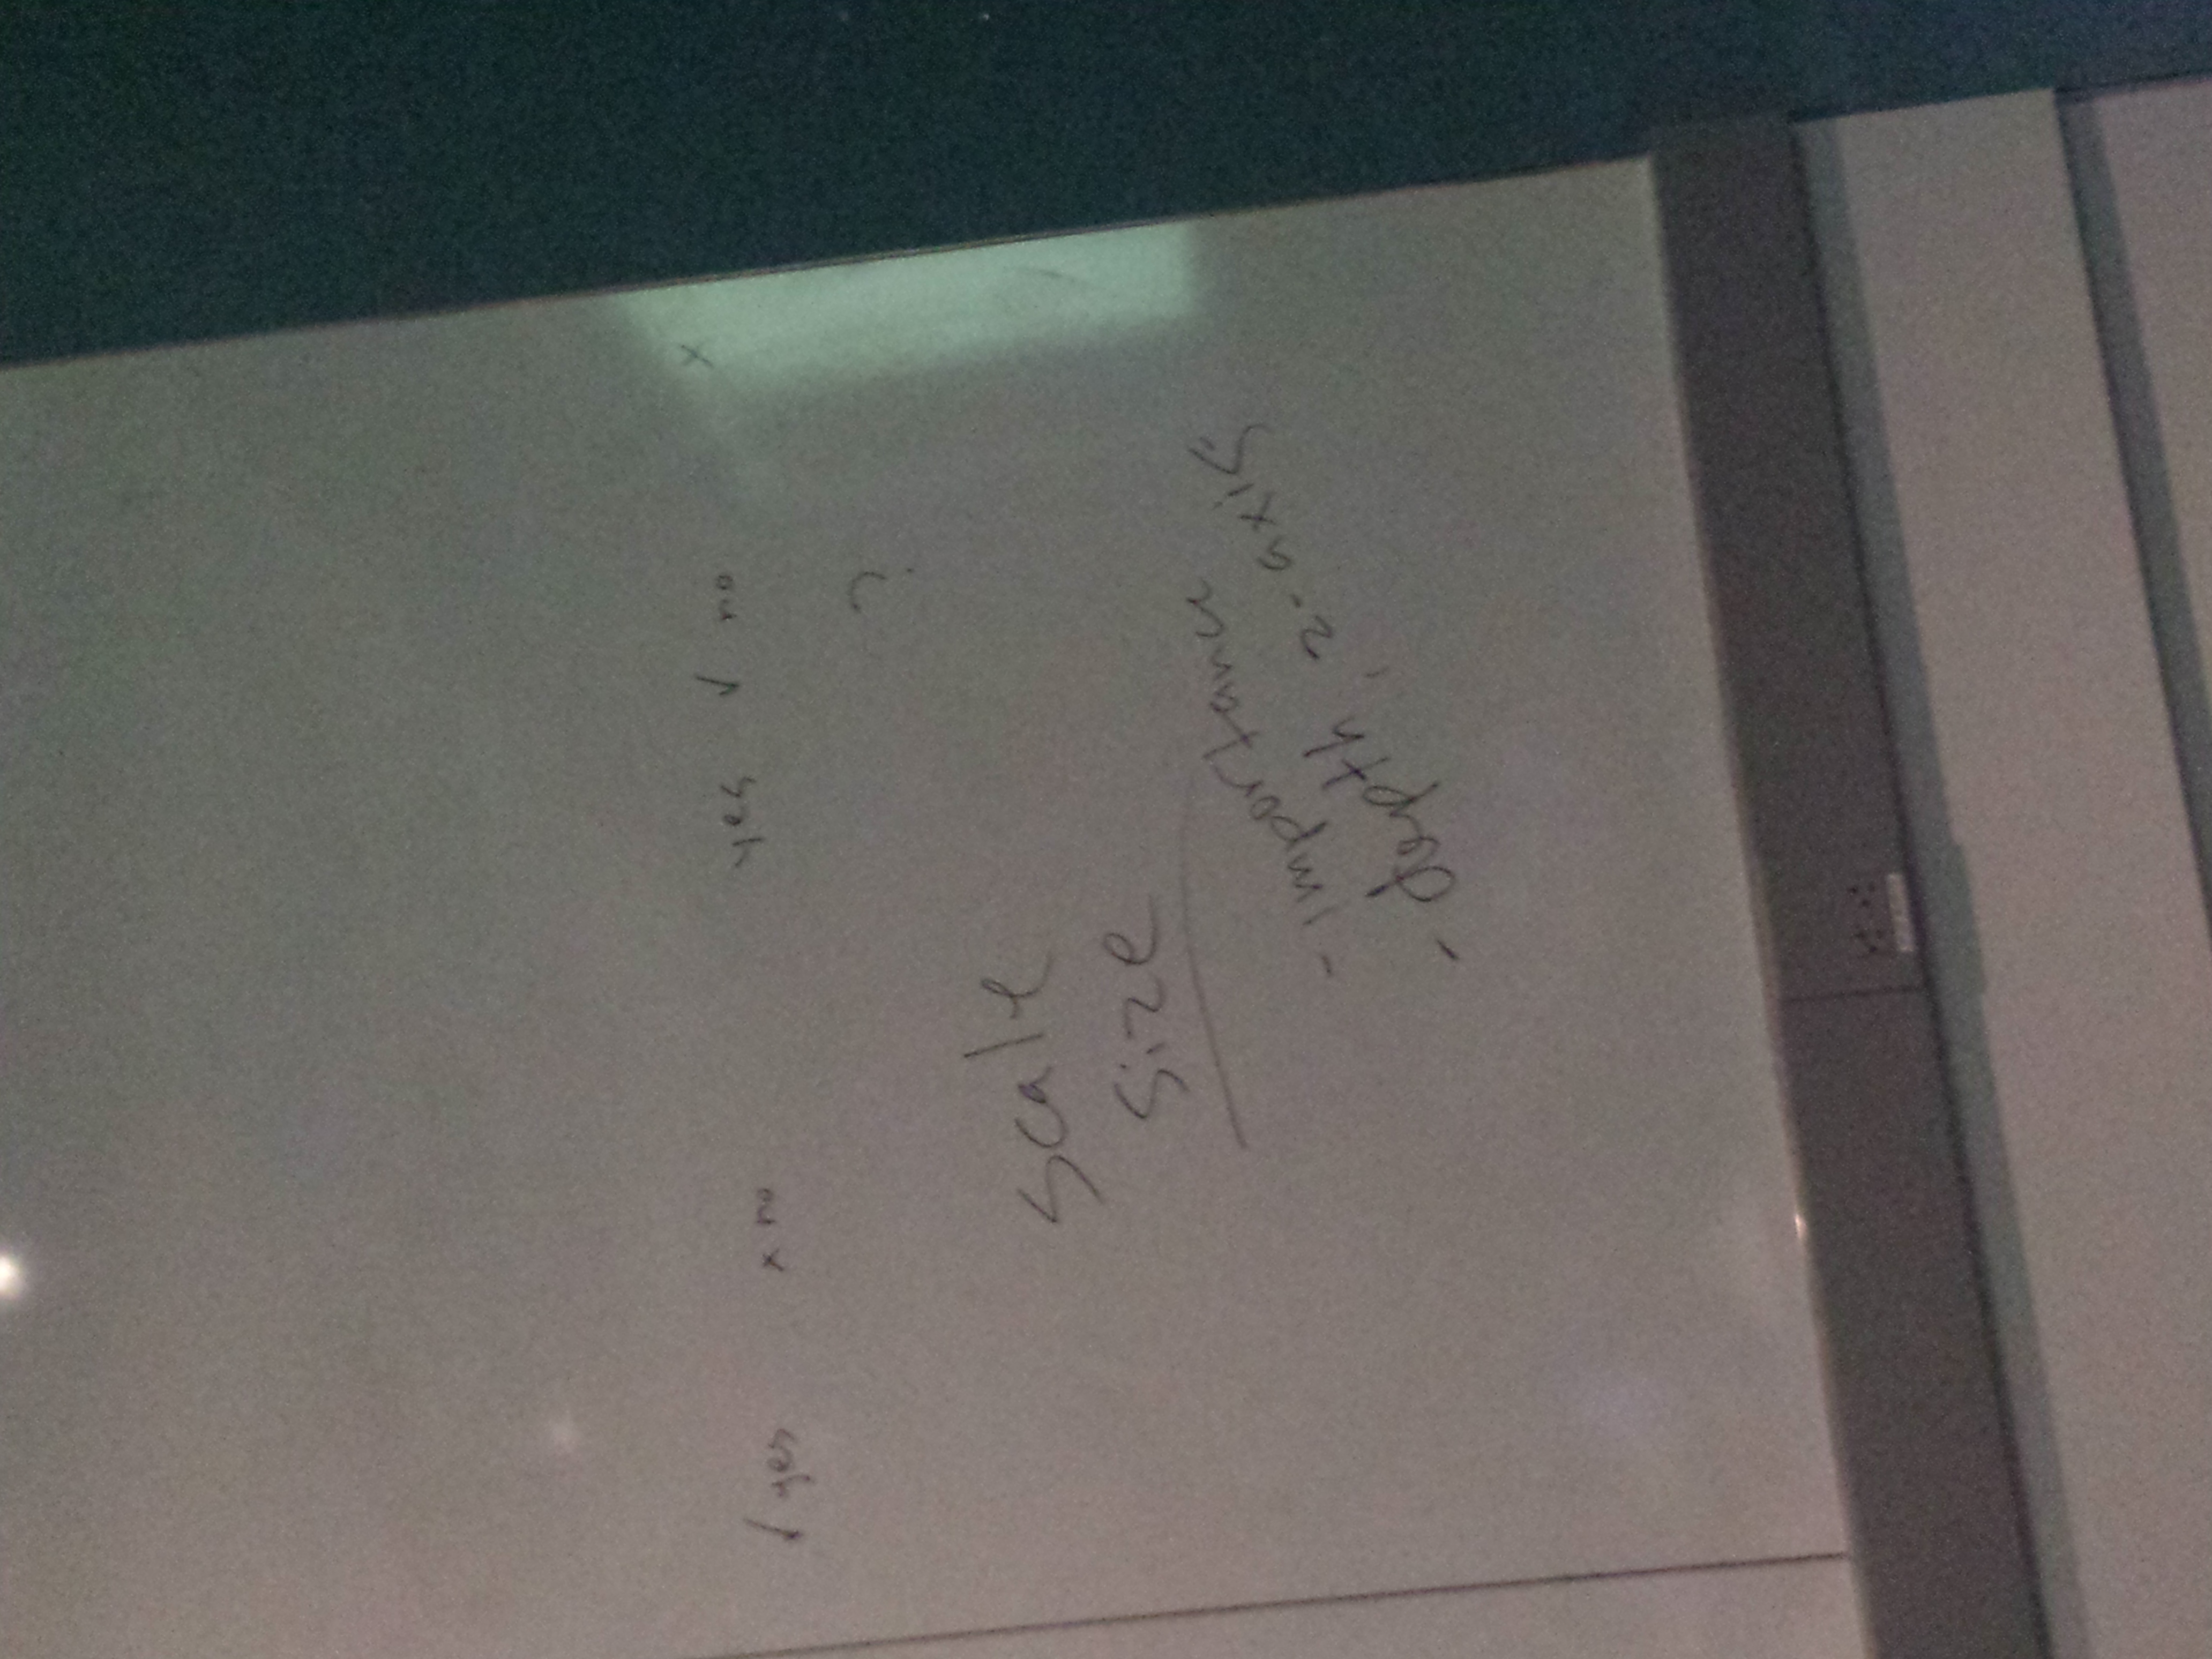 ✓ yes x no yes ✓ no x
?
scale
size
- importance
- depth, z-axis